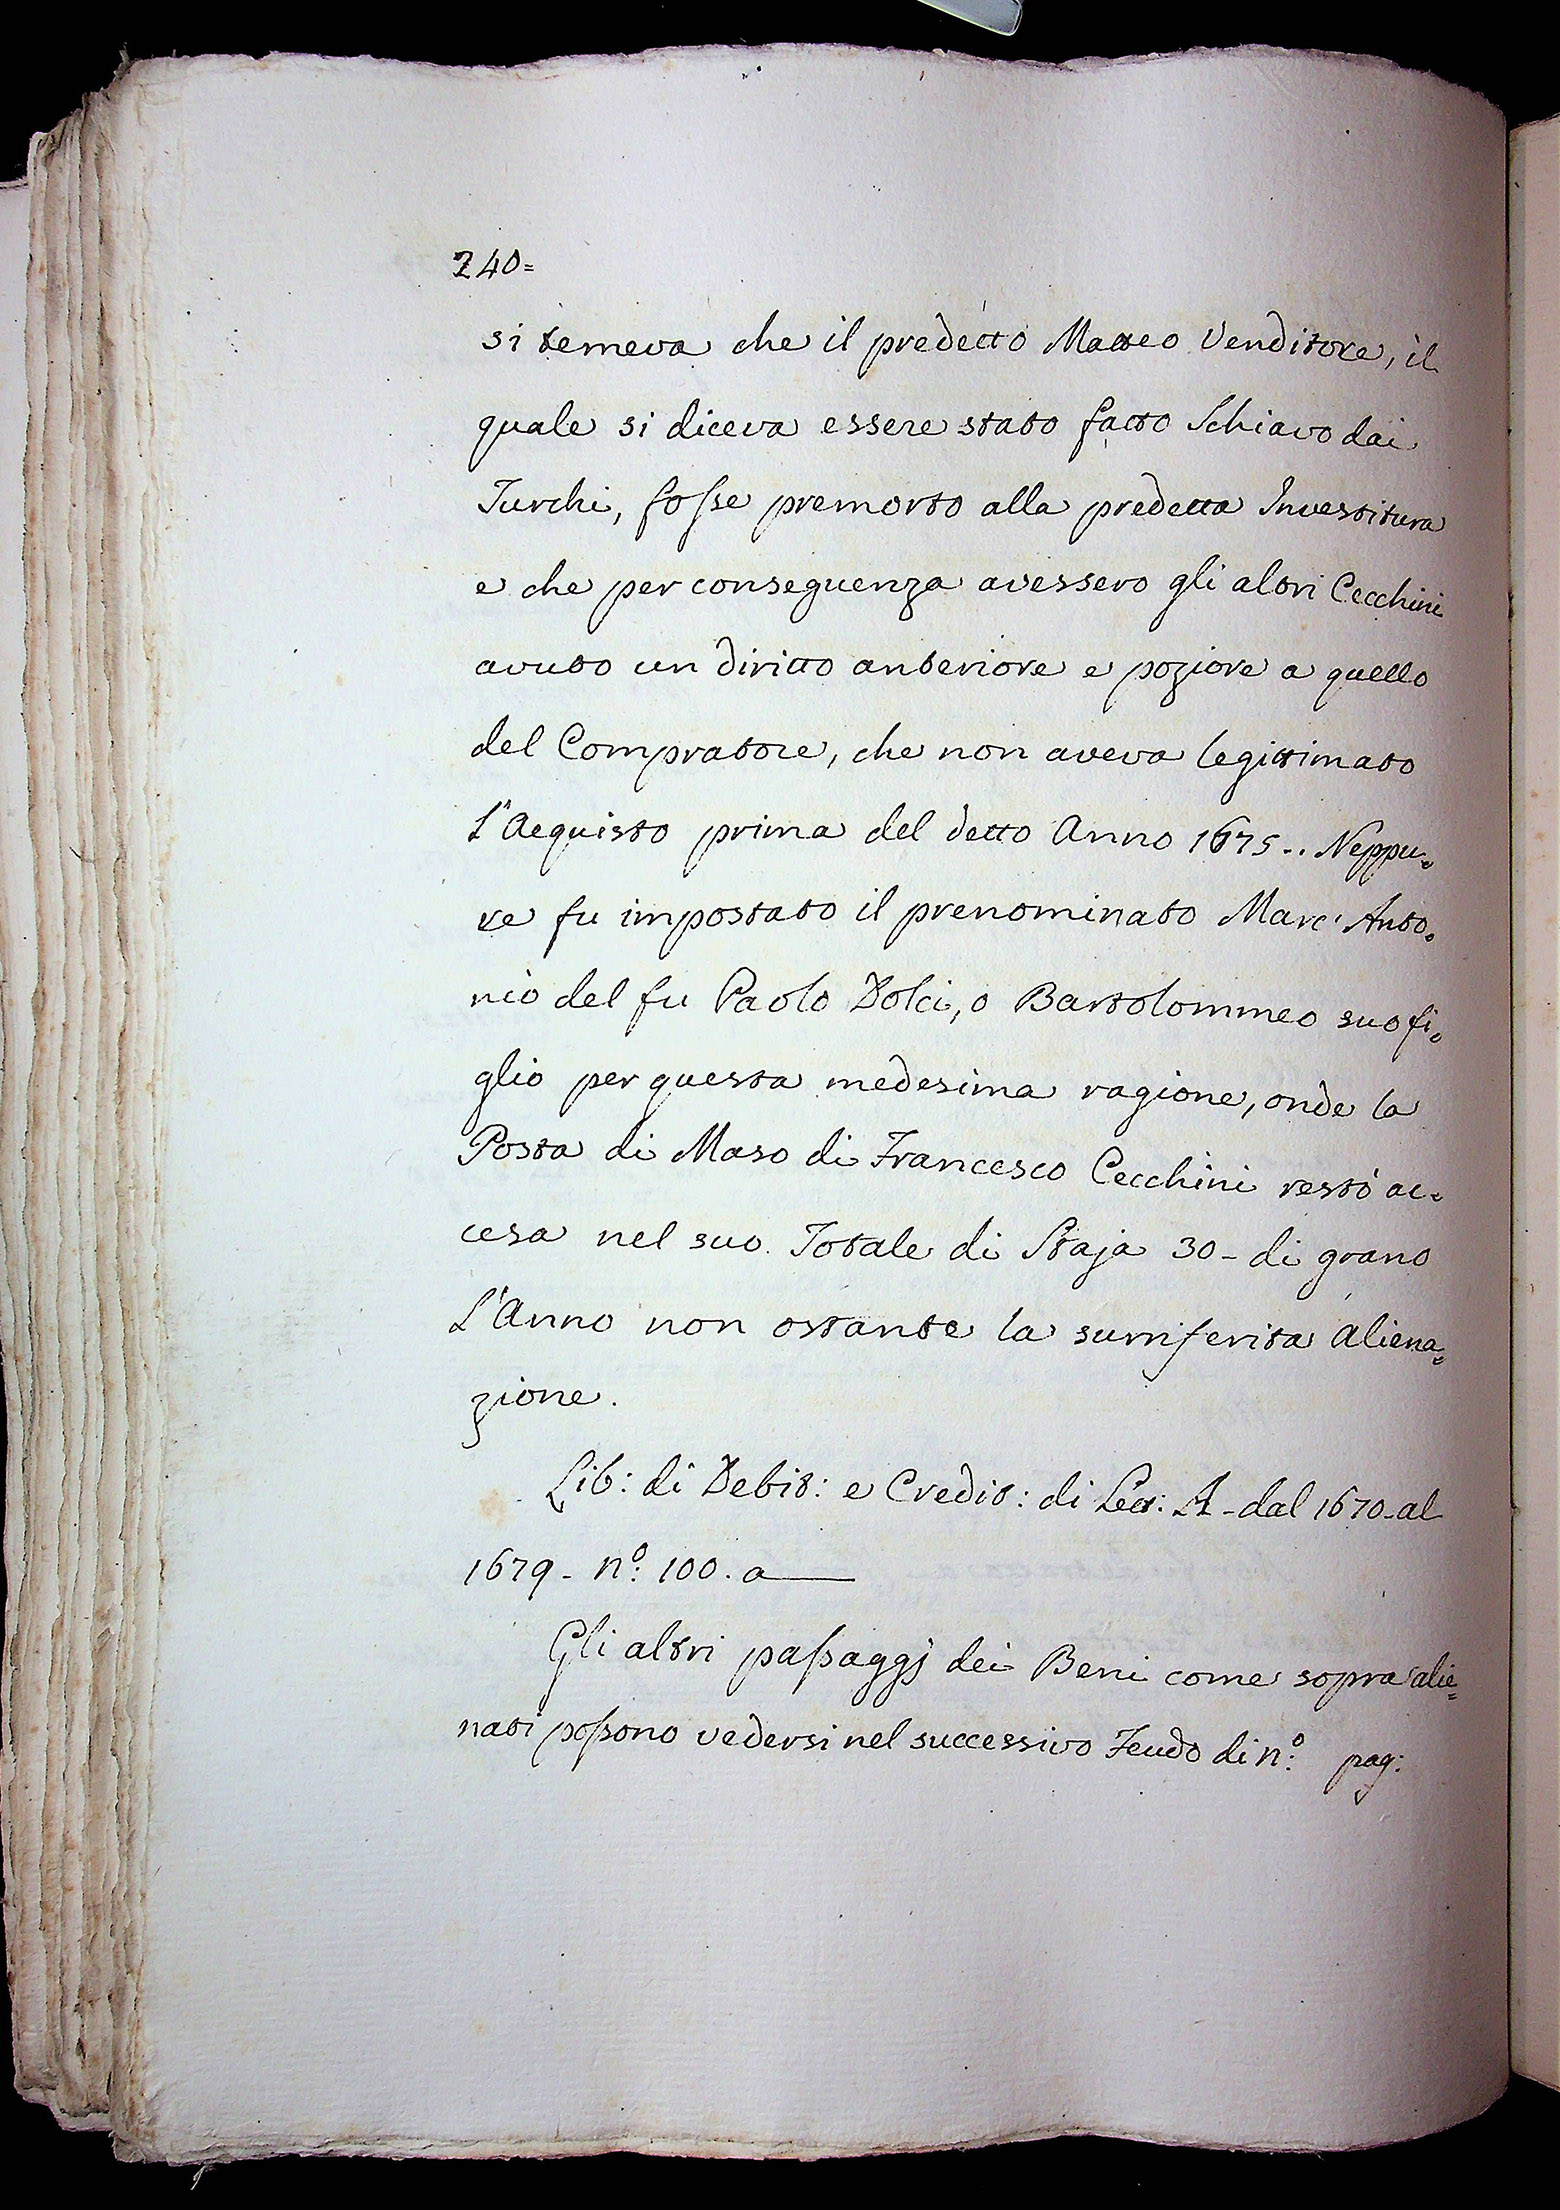 240=
si temeva che il predetto Matteo Venditore, il
quale si diceva essere stato fatto Schiavo dai
Turchi, fosse premorto alla predetta Investitura
e che per conseguenza avessero gli altri Cecchini
avuto un diritto anteriore e poziore a quello
del Compratore, che non aveva legittimato
l'Acquisto prima del detto Anno 1675.. Neppu=
re fu impostato il prenominato Marc' Anto=
nio del fu Paolo Dolci, o Bartolommeo suo fi=
glio per questa medesima ragione, onde la
Posta di Maso di Francesco Cecchini restò ac=
cesa nel suo Totale di Staja 30- di grano
l'Anno non ostante la surriferita aliena=
zione.
Lib: di Debit: e Credit: di Lett: A - dal 1670- al
1679- n.º 100. a
Gli altri passaggj dei Beni come sopra alie=
nati possono vedersi nel successivo Feudo di n.º pag: